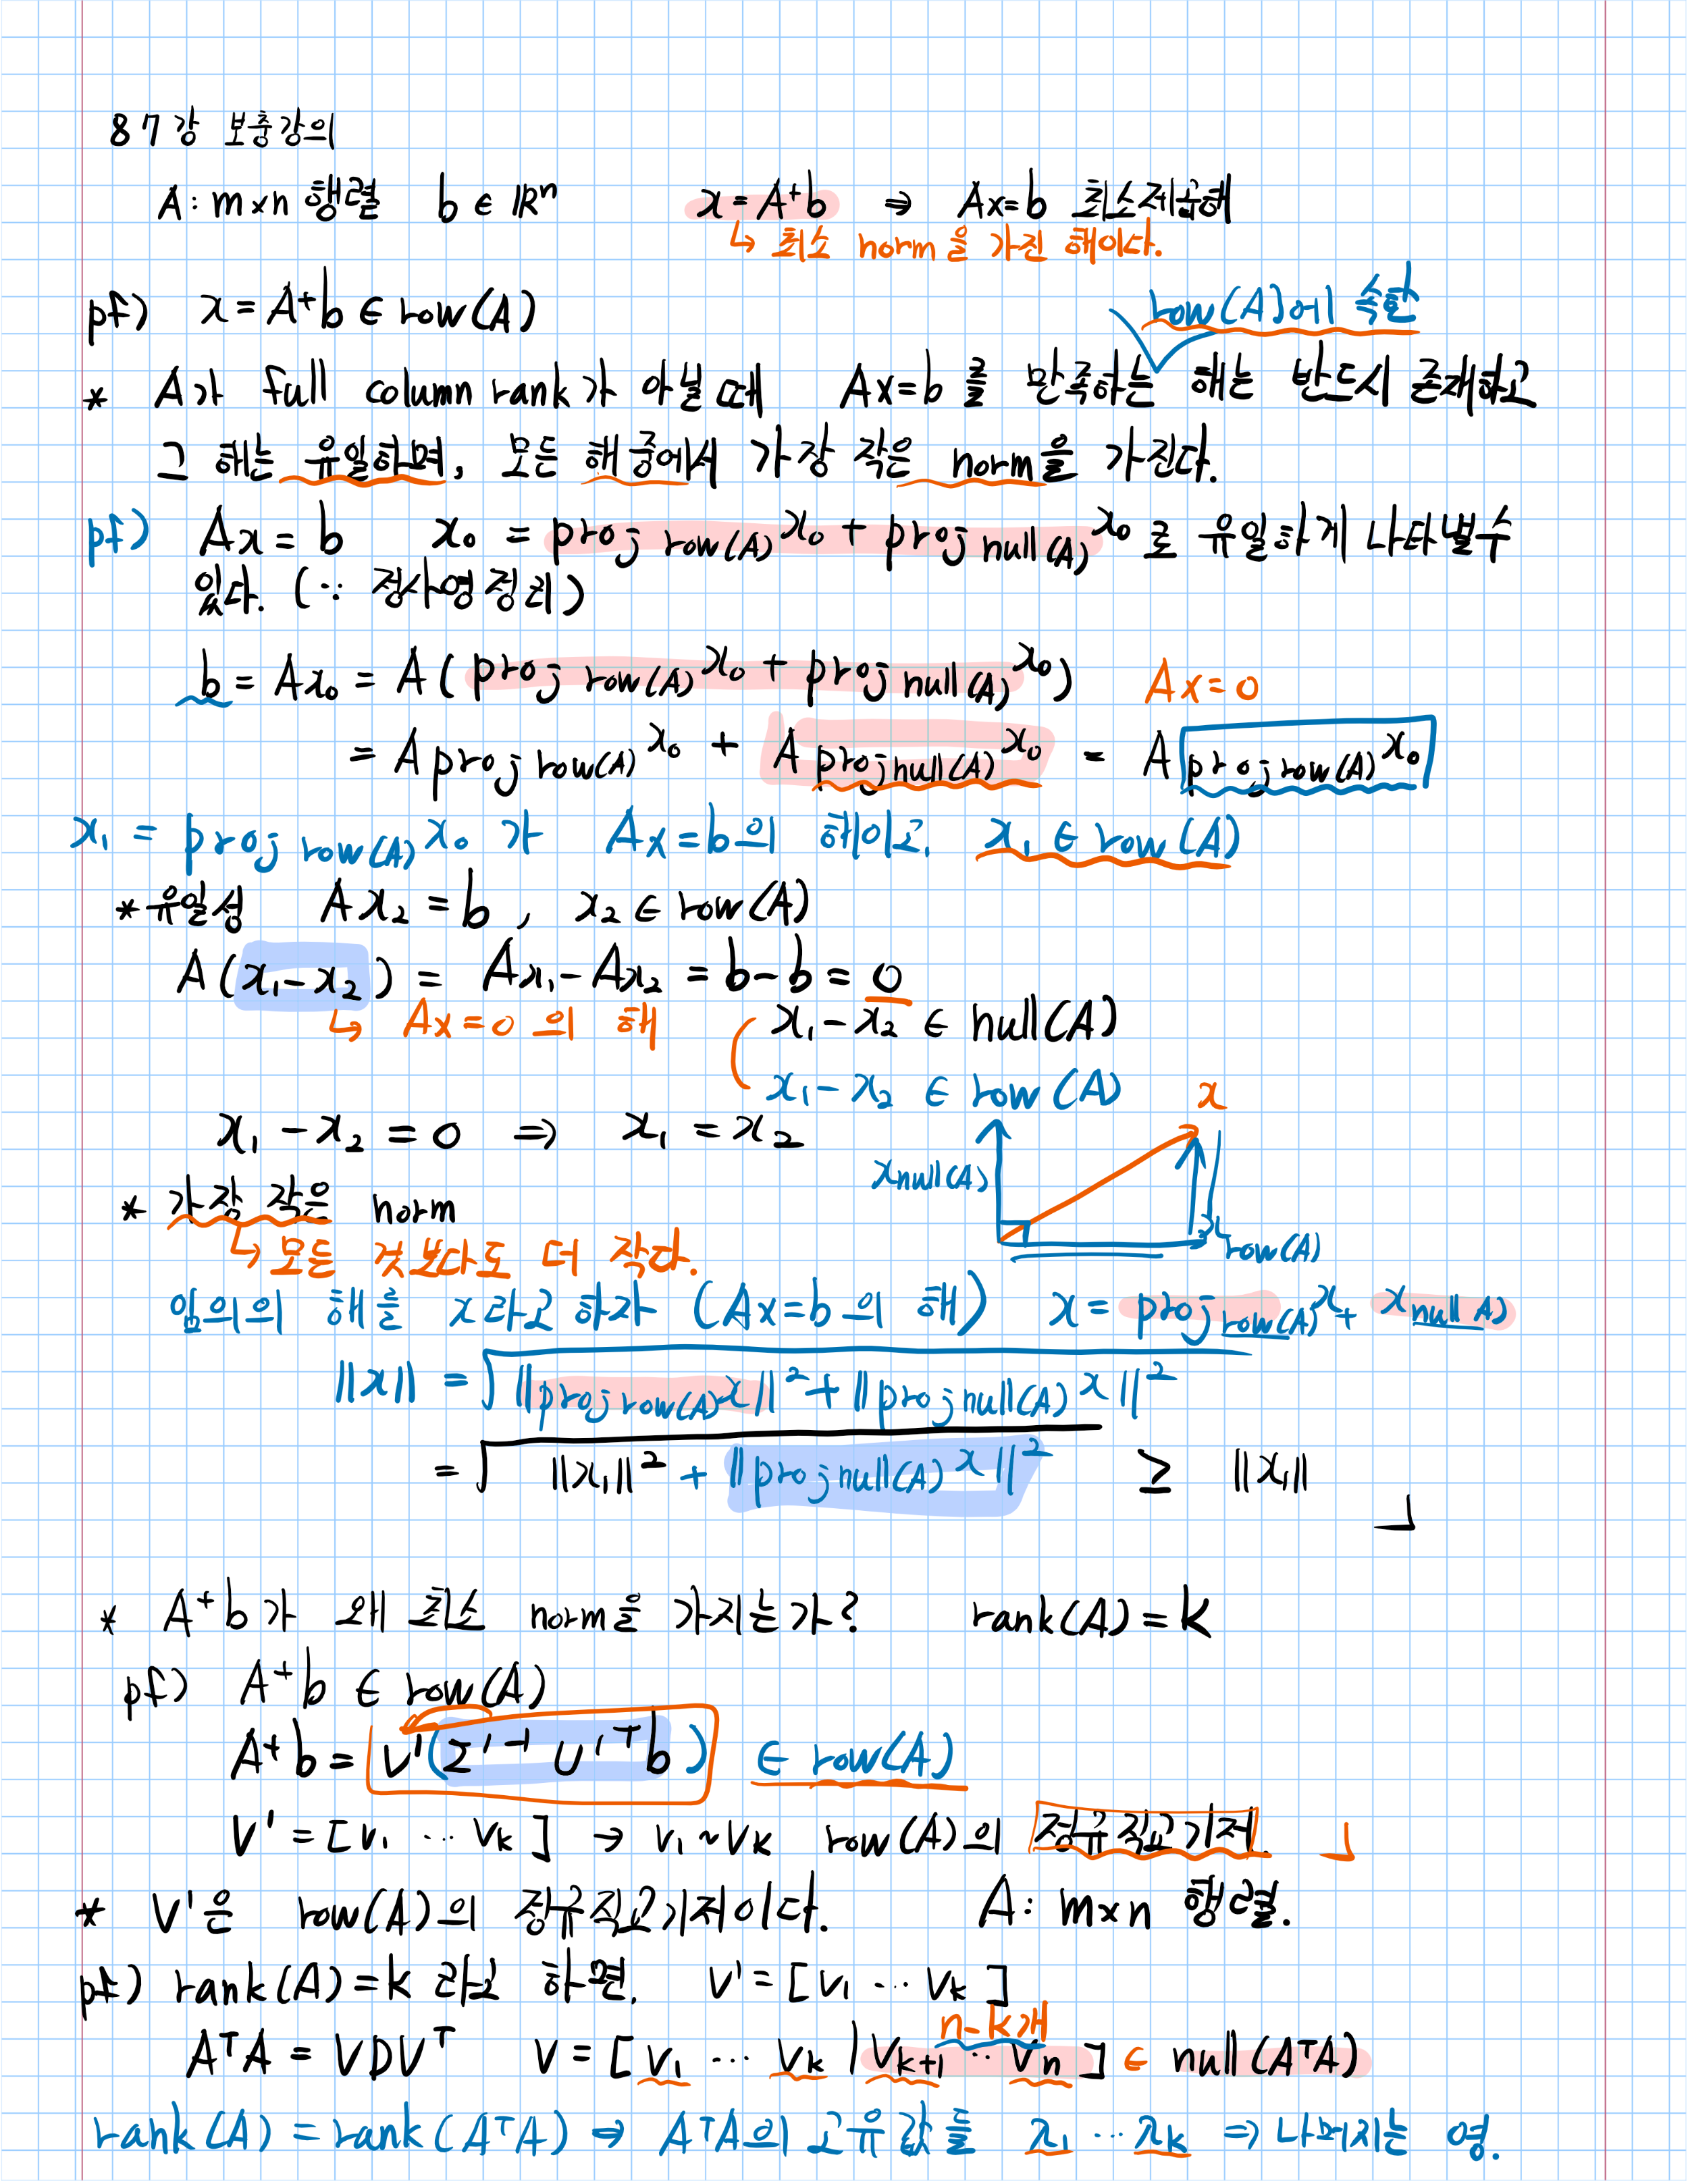 87강 보충강의
A: m×n 행렬 b ∈ ℝⁿ x = A⁺b ⇒ Ax=b 최소제곱해
↳ 최소 norm을 가진 해이다.
pf) x = A⁺b ∈ row(A)
row(A)에 속한
* A가 full column rank가 아닐 때 Ax=b를 만족하는 해는 반드시 존재하고
그 해는 유일하며, 모든 해 중에서 가장 작은 norm을 가진다.
pf) Ax = b x₀ = proj row(A) x₀ + proj null(A) x₀ 로 유일하게 나타낼수
있다. (∵ 정사영정리)
b = Ax₀ = A( proj row(A) x₀ + proj null(A) x₀ ) Ax=0
= A proj row(A) x₀ + A proj null(A) x₀ = A proj row(A) x₀
x₁ = proj row(A) x₀ 가 Ax=b의 해이고, x₁ ∈ row(A)
* 유일성 Ax₂ = b , x₂ ∈ row(A)
A(x₁-x₂) = Ax₁-Ax₂ = b-b = 0
↳ Ax=0 의 해 x₁-x₂ ∈ null(A)
x₁-x₂ ∈ row(A)
x₁-x₂ = 0 ⇒ x₁ = x₂
x
x null(A)
x row(A)
* 가장 작은 norm
↳ 모든 것보다도 더 작다.
임의의 해를 x라고 하자 (Ax=b의 해) x = proj row(A) x + x null(A)
||x|| = √ ||proj row(A) x||² + ||proj null(A) x||²
= √ ||x₁||² + ||proj null(A) x||² ≥ ||x₁||
* A⁺b가 왜 최소 norm을 가지는가? rank(A) = k
pf) A⁺b ∈ row(A)
A⁺b = V'(Σ'⁻¹ U'ᵀb) ∈ row(A)
V' = [v₁ ⋯ vₖ] → v₁~vₖ row(A)의 정규직교기저.
* V'은 row(A)의 정규직교기저이다. A: m×n 행렬.
pf) rank(A)=k 라고 하면. V' = [v₁ ⋯ vₖ]
n-k개
AᵀA = VDVᵀ V = [v₁ ⋯ vₖ | vₖ₊₁ ⋯ vₙ] ∈ null(AᵀA)
rank(A) = rank(AᵀA) ⇒ AᵀA의 고유값들 λ₁ ⋯ λₖ ⇒ 나머지는 영.